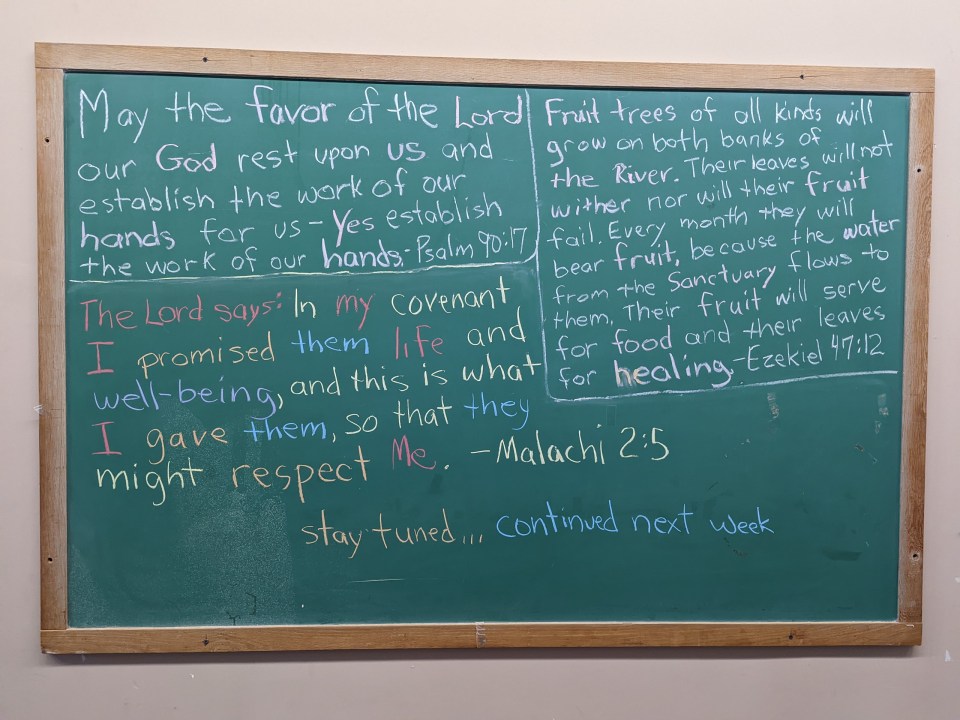 May the favor of the Lord
our God rest upon us and
establish the work of our
hands for us - Yes establish
the work of our hands. - Psalm 90:17
Fruit trees of all kinds will
grow on both banks of
the River. Their leaves will not
wither nor will their fruit
fail. Every month they will
bear fruit, because the water
from the Sanctuary flows to
them. Their fruit will serve
for food and their leaves
for healing. - Ezekiel 47:12
The Lord says: In my covenant
I promised them life and
well-being, and this is what
I gave them, so that they
might respect Me. - Malachi 2:5
stay tuned... continued next week